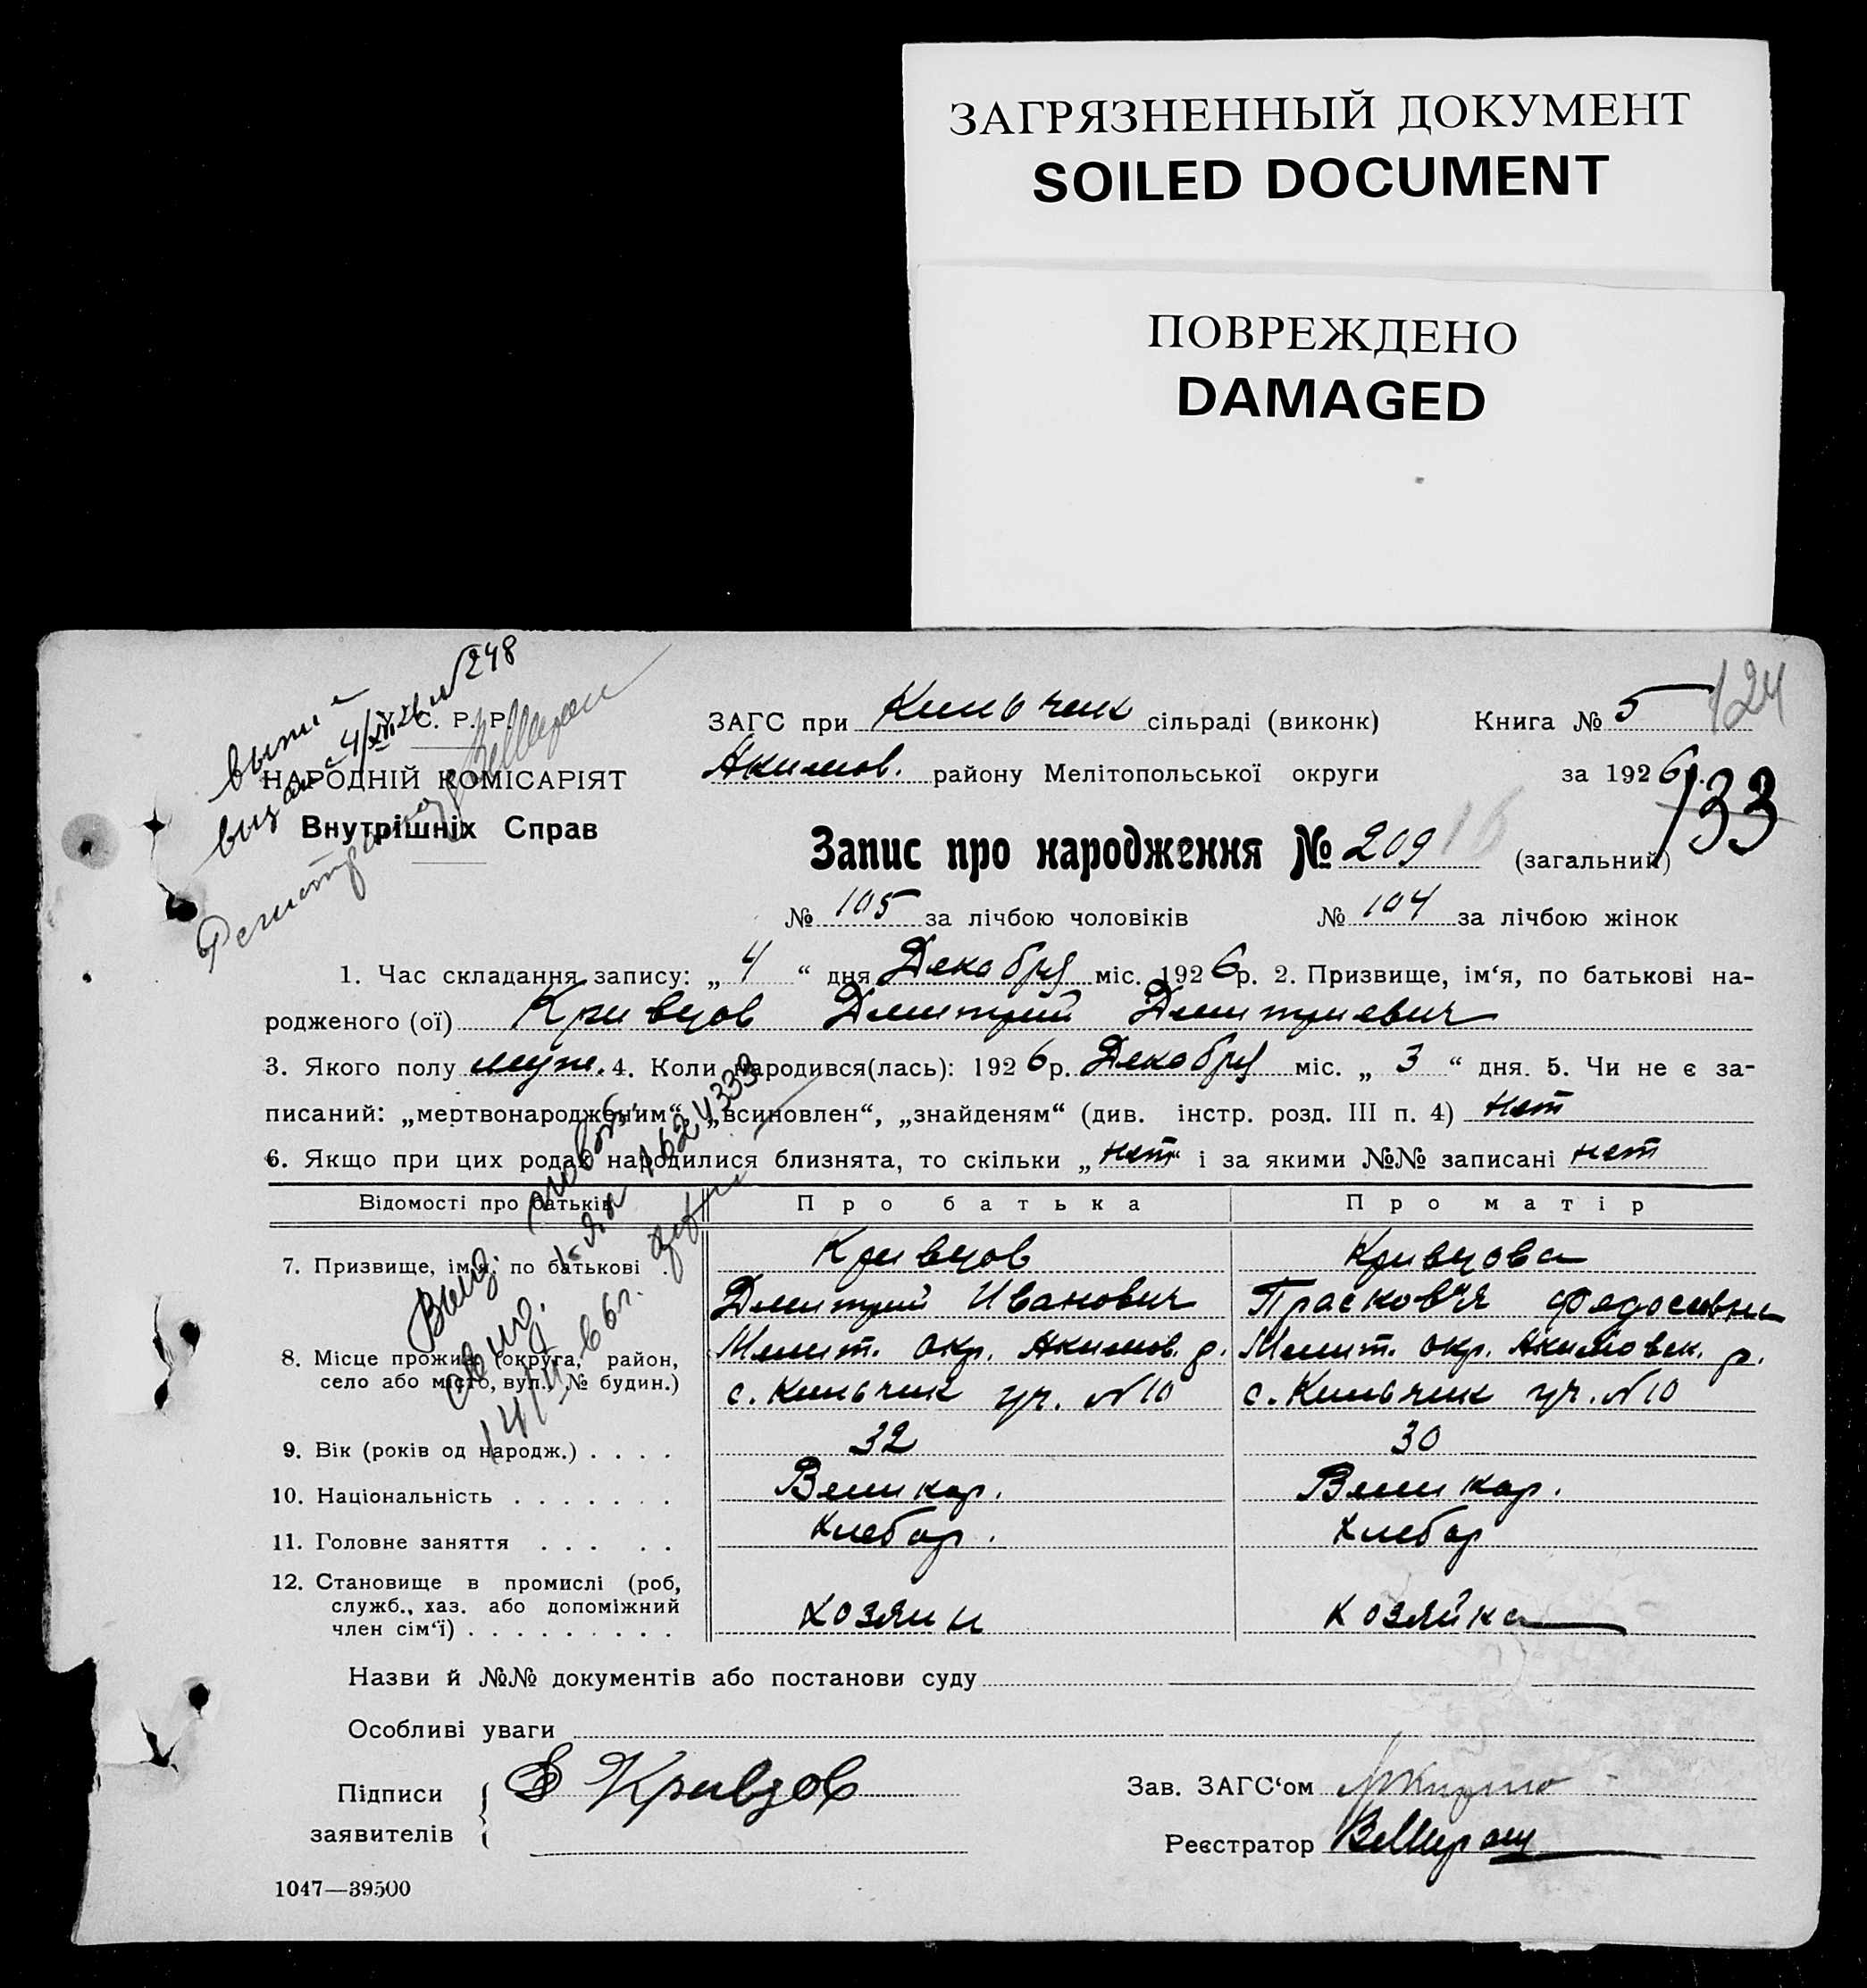 ЗАГРЯЗНЕННЫЙ ДОКУМЕНТ
SOILED DOCUMENT
ПОВРЕЖДЕНО
DAMAGED
124
выпис
выдана 4/XII 26 №248
Регистратор
У. С. Р. Р.
НАРОДНІЙ КОМІСАРІЯТ
Внутрішніх Справ
ЗАГС при Кильчик сільраді (виконк) Книга № 5
Акимов. району Мелітопольської округи за 1926 р.
133
Запис про народження № 209 (загальний)
16
№ 105 за лічбою чоловіків № 104 за лічбою жінок
1. Час складання запису: „ 4 “ дня Декабря міс. 1926 р. 2. Призвище, ім‘я, по батькові на-
родженого (ої) Кривцов Дмитрий Дмитриевич
3. Якого полу муж. 4. Коли народився(лась): 1926 р. Декабря міс. „ 3 “ дня. 5. Чи не є за-
писаний: „мертвонародженим“, „всиновлен“, „знайденям“ (див. інстр. розд. III п. 4) нет
6. Якщо при цих родах народилися близнята, то скільки „ нет “ і за якими №№ записані нет
Відомості про батьків Про батька Про матір
7. Призвище, ім‘я, по батькові . Кривцов Кривцова
Дмитрий Иванович Прасковʼя Федосиевна
8. Місце прожив. (округа, район, Мелит. окр. Акимов. р. Мелит. окр. Акимовск. р.
село або місто, вул., № будин.) с. Кильчик уч. №10 с. Кильчик уч. №10
9. Вік (років од народж.) . . . . 32 30
10. Національність . . . . . . . Великор. Великор.
11. Головне заняття . . . . . Хлебор. Хлебор
12. Становище в промислі (роб,
служб., хаз. або допоміжний
член сім‘ї) . . . . . . . . . хозяин хозяйка
Выд. повт.
свид. 1-ЯА 1624333
14/II-66г.
Назви й №№ документів або постанови суду
Особливі уваги
Підписи
заявителів
Д Кривцов
Зав. ЗАГС‘ом
Реєстратор
1047—39500